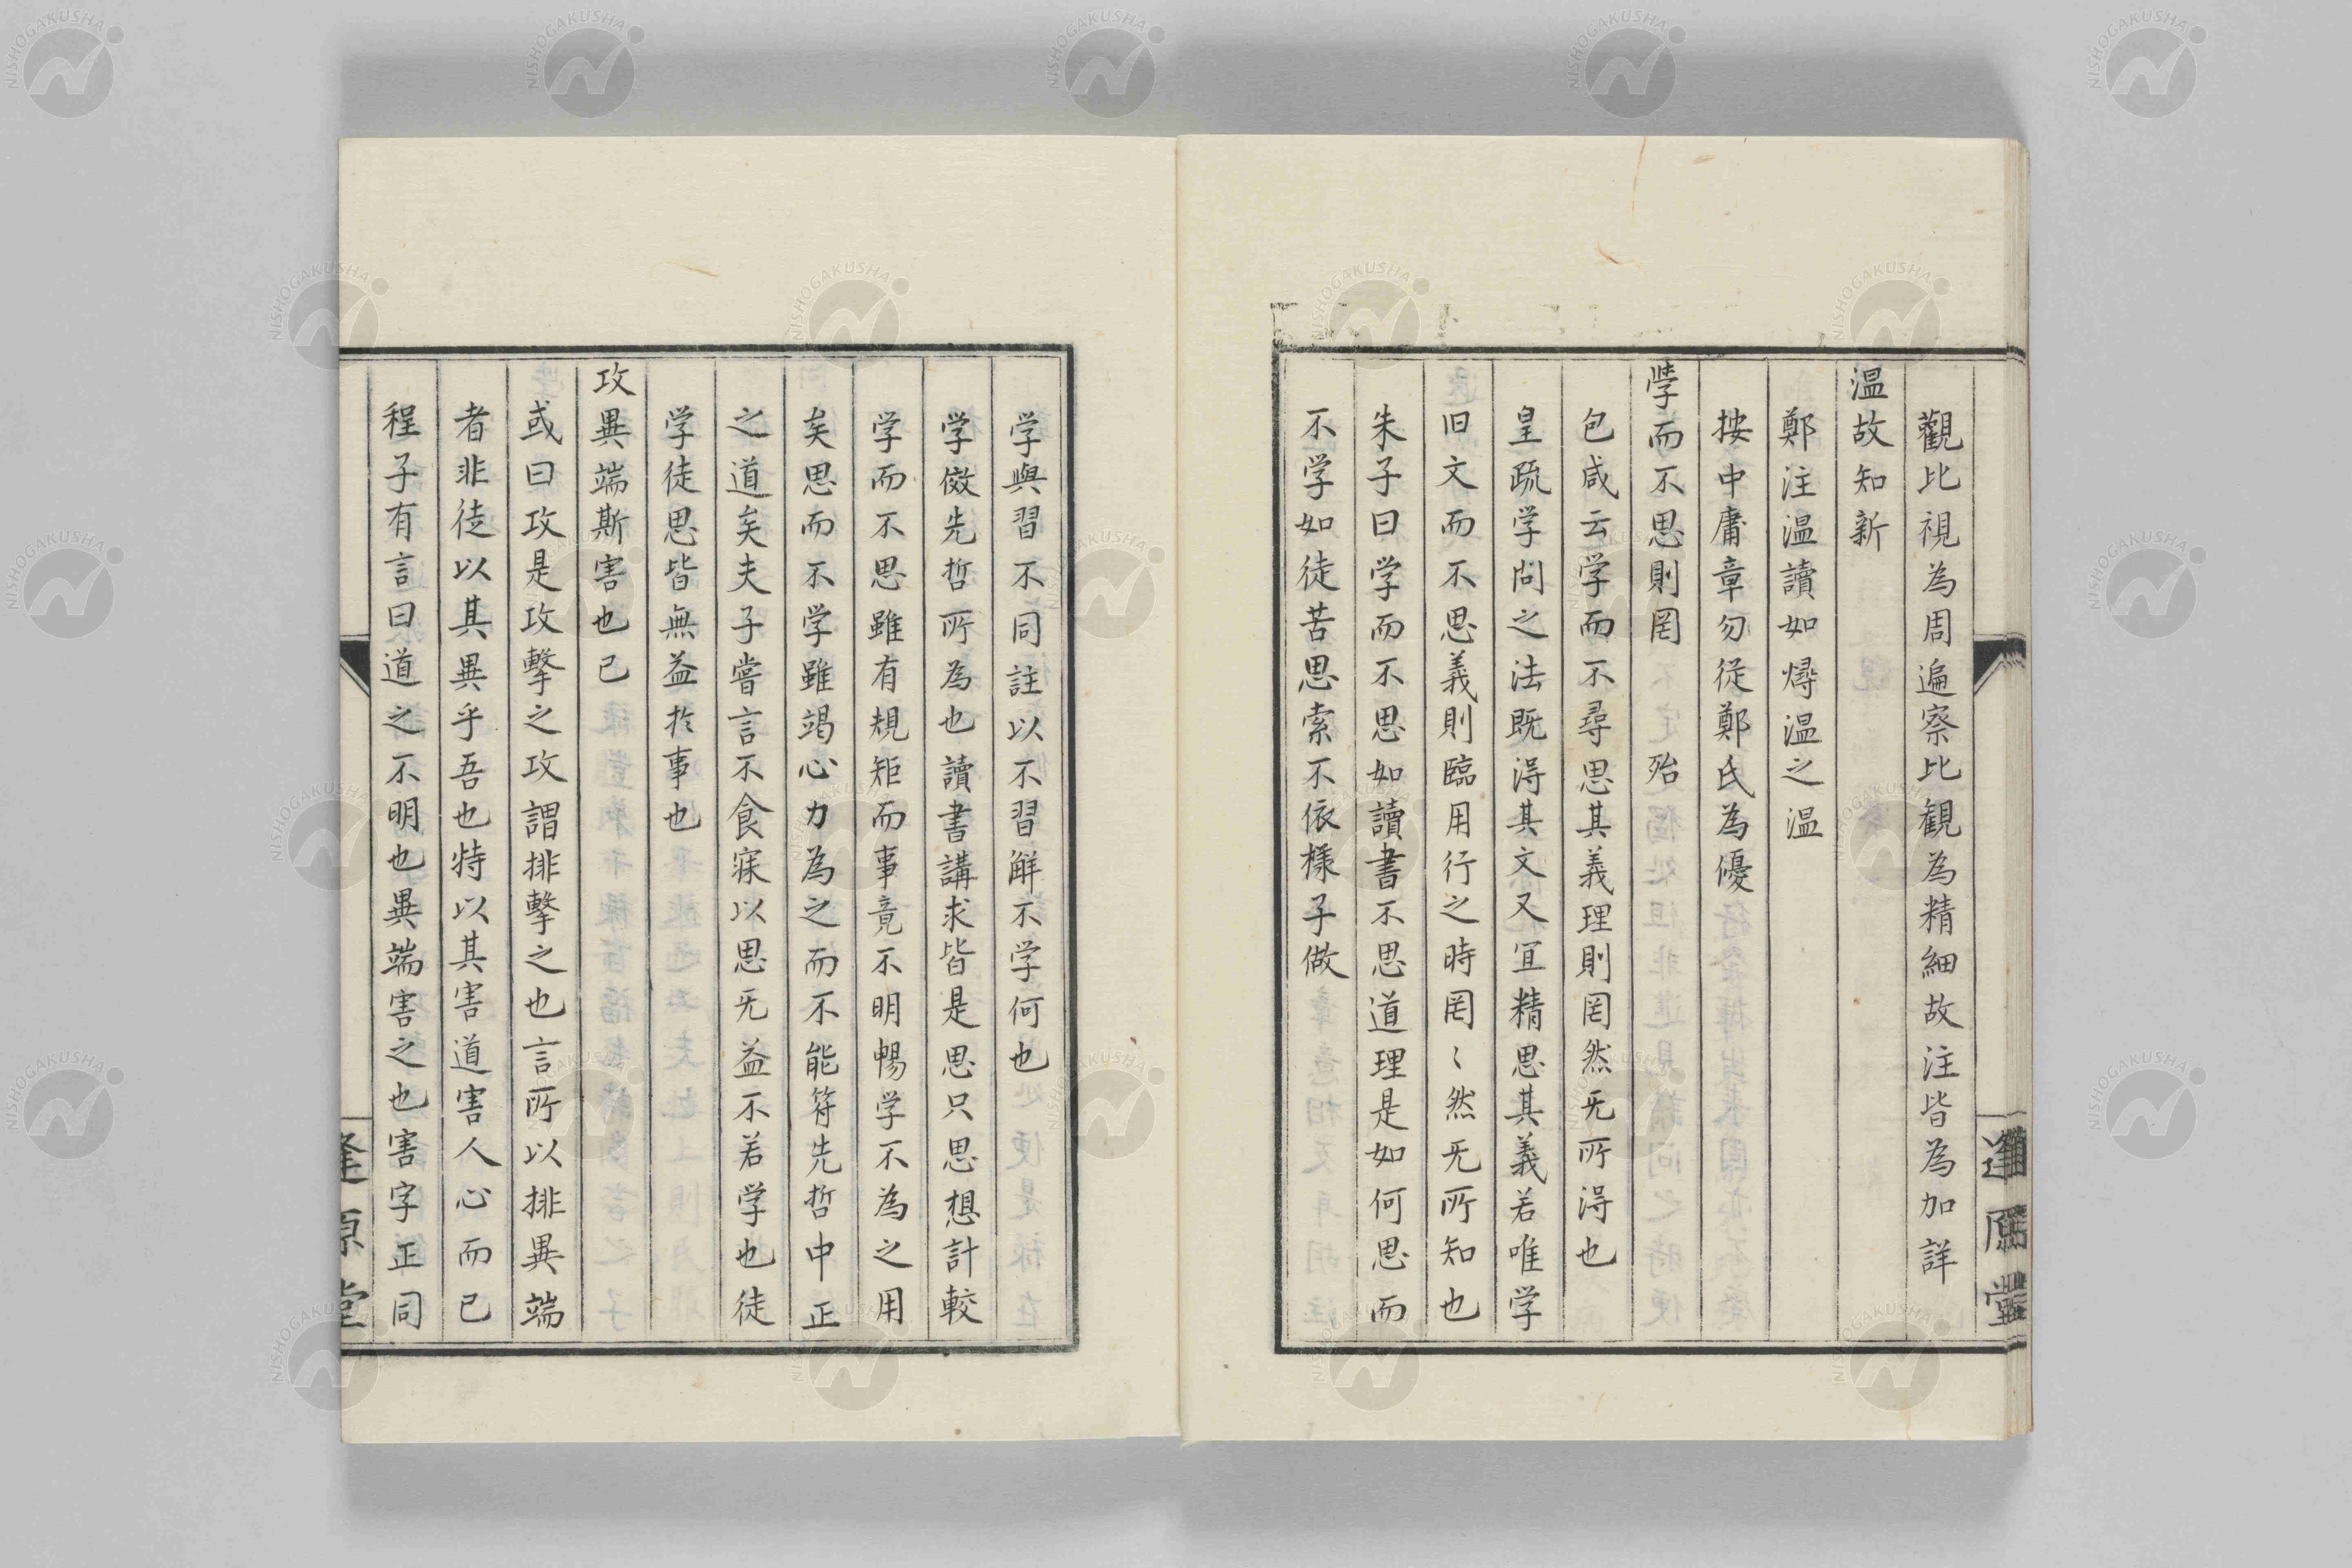 觀比視為周遍察比観為精細故注皆為加詳
温故知新
鄭注温讀如燖温之温
按中庸章勿従鄭氏為優
学而不思則罔 殆
包咸云学而不尋思其義理則罔然无所淂也
皇疏学問之法既淂其文又冝精思其義若唯学
旧文而不思義則臨用行之時罔〻然无所知也
朱子曰学而不思如讀書不思道理是如何思而
不学如徒苦思索不依様子做
逢原堂
学與習不同註以不習解不学何也
学傚先哲所為也讀書講求皆是思只思想計較
学而不思雖有規矩而事竟不明暢学不為之用
矣思而不学雖竭心力為之而不能符先哲中正
之道矣夫子嘗言不食寐以思无益不若学也徒
学徒思皆無益扵事也
攻異端斯害也已
或曰攻是攻擊之攻謂排擊之也言所以排異端
者非徒以其異乎吾也特以其害道害人心而已
程子有言曰道之不明也異端害之也害字正同
逢原堂
NISHOGAKUSHA